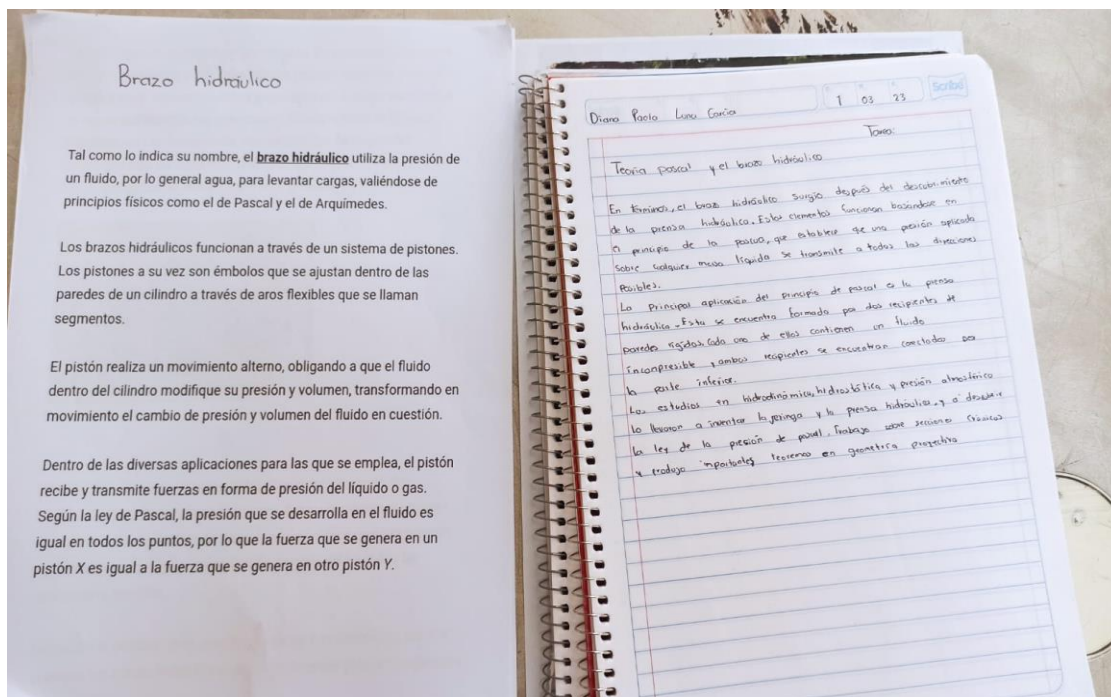 Brazo hidráulico
Tal como lo indica su nombre, el brazo hidráulico utiliza la presión de
un fluido, por lo general agua, para levantar cargas, valiéndose de
principios físicos como el de Pascal y el de Arquímedes.
Los brazos hidráulicos funcionan a través de un sistema de pistones.
Los pistones a su vez son émbolos que se ajustan dentro de las
paredes de un cilindro a través de aros flexibles que se llaman
segmentos.
El pistón realiza un movimiento alterno, obligando a que el fluido
dentro del cilindro modifique su presión y volumen, transformando en
movimiento el cambio de presión y volumen del fluido en cuestión.
Dentro de las diversas aplicaciones para las que se emplea, el pistón
recibe y transmite fuerzas en forma de presión del líquido o gas.
Según la ley de Pascal, la presión que se desarrolla en el fluido es
igual en todos los puntos, por lo que la fuerza que se genera en un
pistón X es igual a la fuerza que se genera en otro pistón Y.
Scribe
1 03 23
Diana Paola Luna García
Tarea:
Teoría pascal y el brazo hidráulico
En términos, el brazo hidráulico surgió después del descubrimiento
de la prensa hidráulica. Estos elementos funcionan basandose en
el principio de la pascua, que establece que una presión aplicada
sobre cualquier masa líquida se transmite a todas las direcciones
posibles.
La principal aplicación del principio de pascal es la prensa
hidráulica. Esta se encuentra formada por dos recipientes de
paredes rígidas, cada uno de ellos contienen un fluido
incompresible y ambos recipientes se encuentran conectados por
la parte inferior.
Los estudios en hidrodinámica, hidrostática y presión atmosférica
lo llevaron a inventar la jeringa y la prensa hidráulica, y a descubrir
la ley de la presión de pascal. Trabajo sobre secciones cónicas
y produjo importantes teoremas en geometría proyectiva